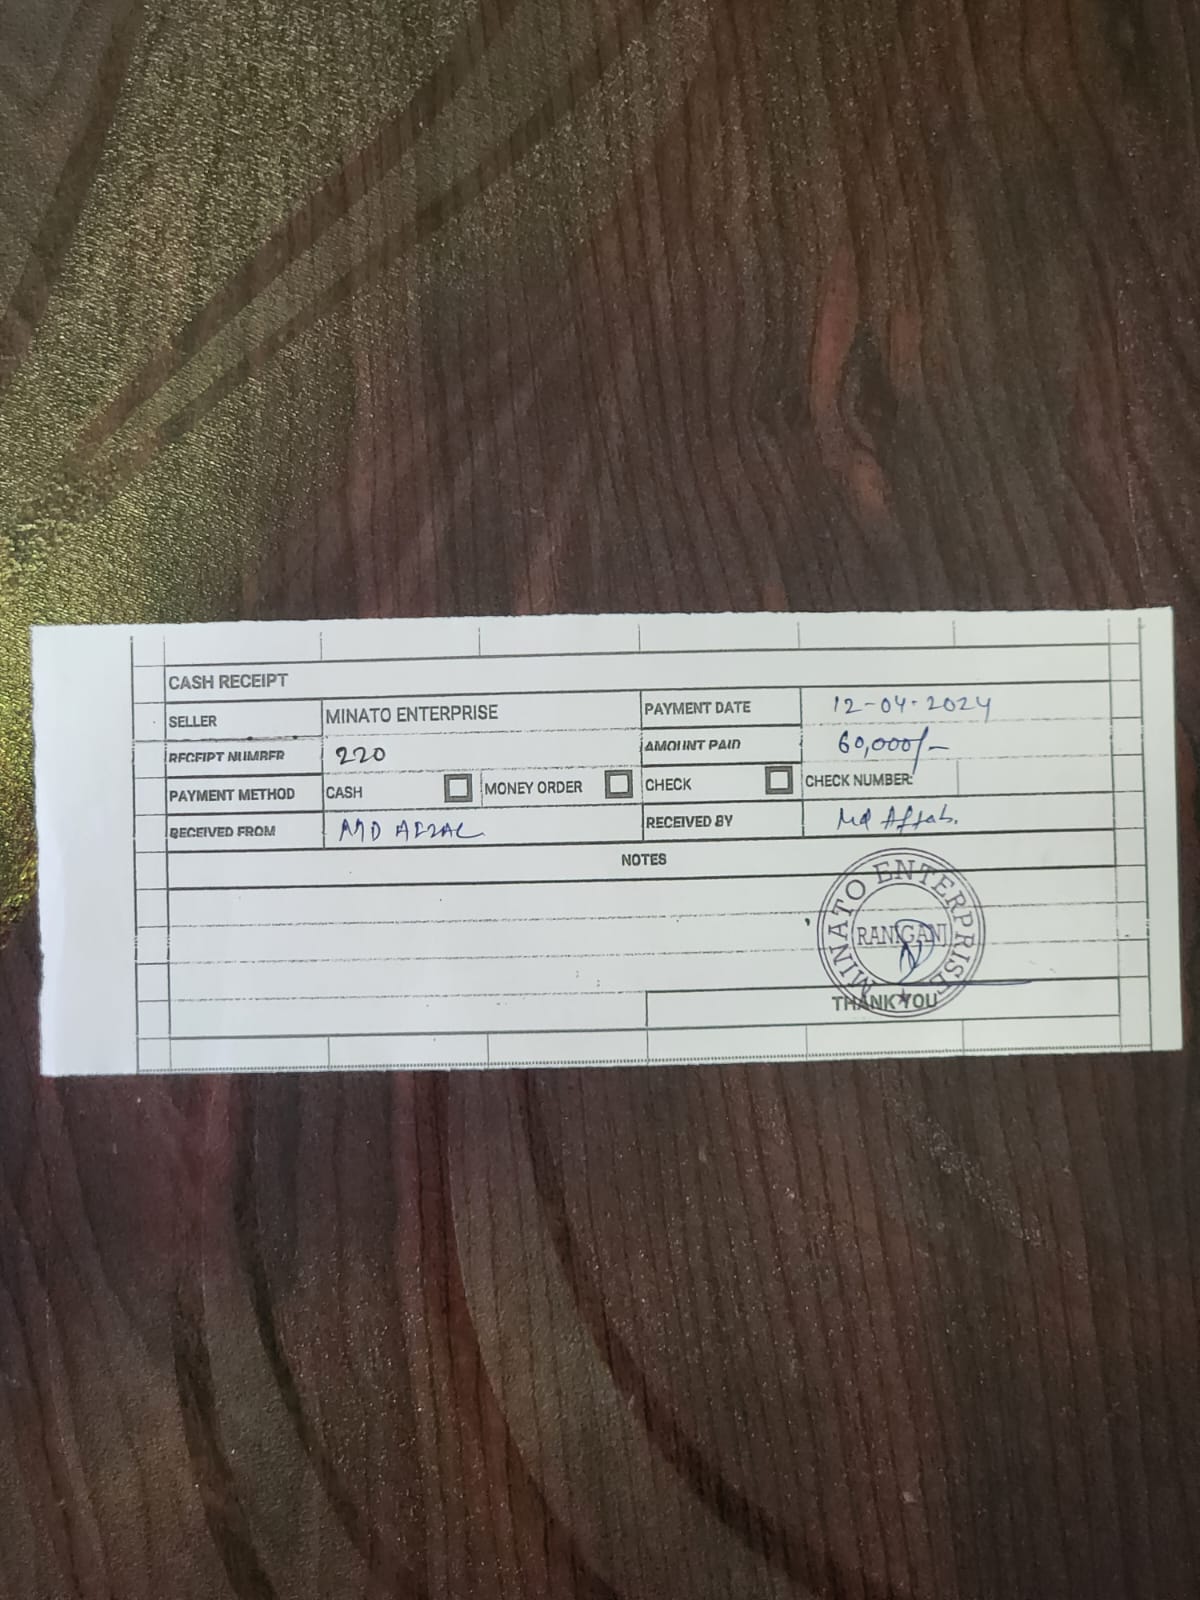 CASH RECEIPT
SELLER MINATO ENTERPRISE PAYMENT DATE 12-04-2024
RECEIPT NUMBER 220 AMOUNT PAID 60,000/-
PAYMENT METHOD CASH MONEY ORDER CHECK CHECK NUMBER:
RECEIVED FROM MD AFZAL RECEIVED BY Md Aftab.
NOTES
MINATO ENTERPRISE
RANIGANJ
THANK YOU